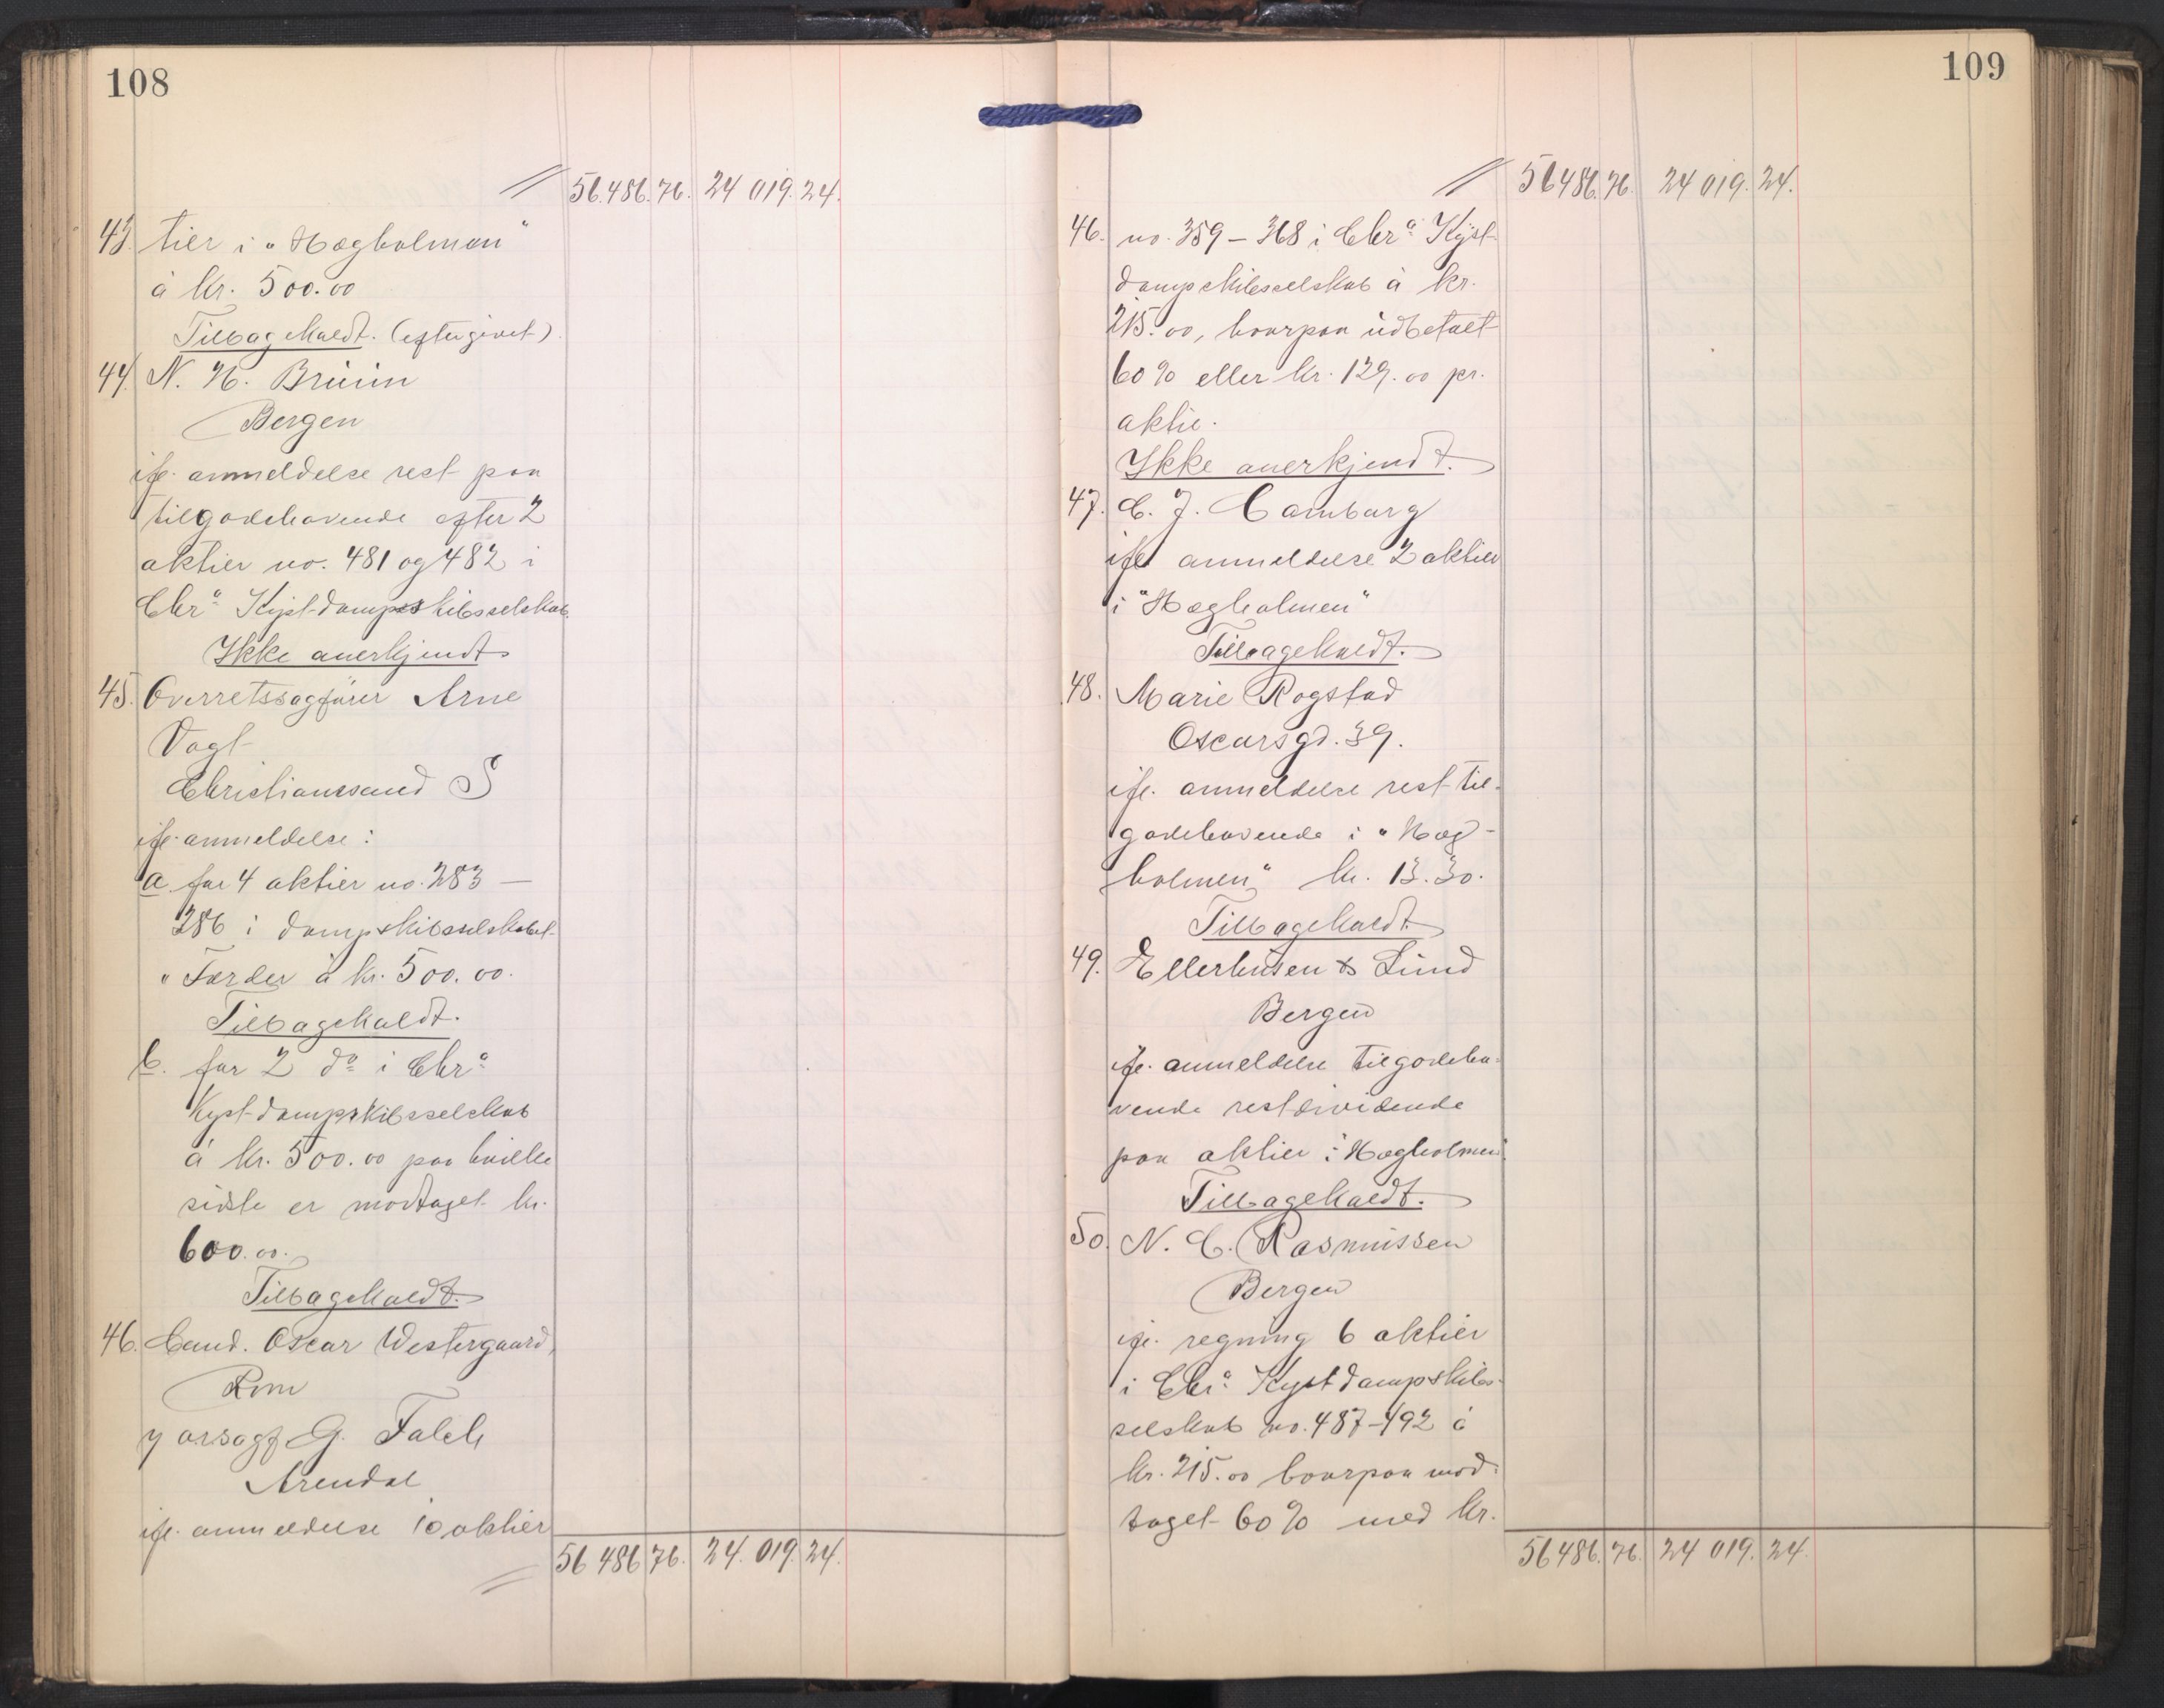 108
56.486.76. 24 019.24.
43. tier i "Hægholmen"
à kr. 500.00
Tilbagekaldt. (eftergivet).
44. N. H. Bruun
Bergen
ifl. anmeldelse rest paa
tilgodehavende efter 2
aktier no. 481 og 482 i
Chra Kyst-dampskibsselskab.
Ikke anerkjendt
45. Overretssagfører Arne
Vogt
Christianssand S
ifl. anmeldelse:
a. for 4 aktier no. 283 —
286 i dampskibsselskabet
"Færder à kr. 500.00.
Tilbagekaldt.
b. for 2 do i Chra
Kyst-dampskibsselskab
à kr. 500.00 paa hvilke
sidste er modtaget kr.
600.00.
Tilbagekaldt.
46. Cand. Oscar Westergaard,
Rom
v orsagf G. Falch
Arendal
ifl. anmeldelse 10 aktier
56 486 76. 24. 019. 24.
109
56486.76. 24 019. 24.
46. no. 359 – 368 i Chra Kyst-
dampskibsselskab à kr.
215.00, hvorpaa udbetalt
60 % eller kr. 129.00 pr.
aktie.
Ikke anerkjendt.
47. C. J. Hamburg
ifl anmeldelse 2 aktier
i "Hægholmen"
Tilbagekaldt.
48. Marie Rogstad
Oscarsgd. 39.
ifl. anmeldelse rest til-
godehavende i "Hæg-
holmen" kr. 13.30.
Tilbagekaldt.
49. Ellerhusen & Lund
Bergen
ifl. anmeldelse tilgodeha-
vende restdividende
paa aktier i "Hægholmen".
Tilbagekaldt.
50. N. C. Rasmussen
Bergen
ifl. regning 6 aktier
i Chra Kystdampskibs-
selskab no. 487–492 à
kr. 215.00 hvorpaa mod-
taget 60 % med kr.
56486. 76. 24 019. 24.